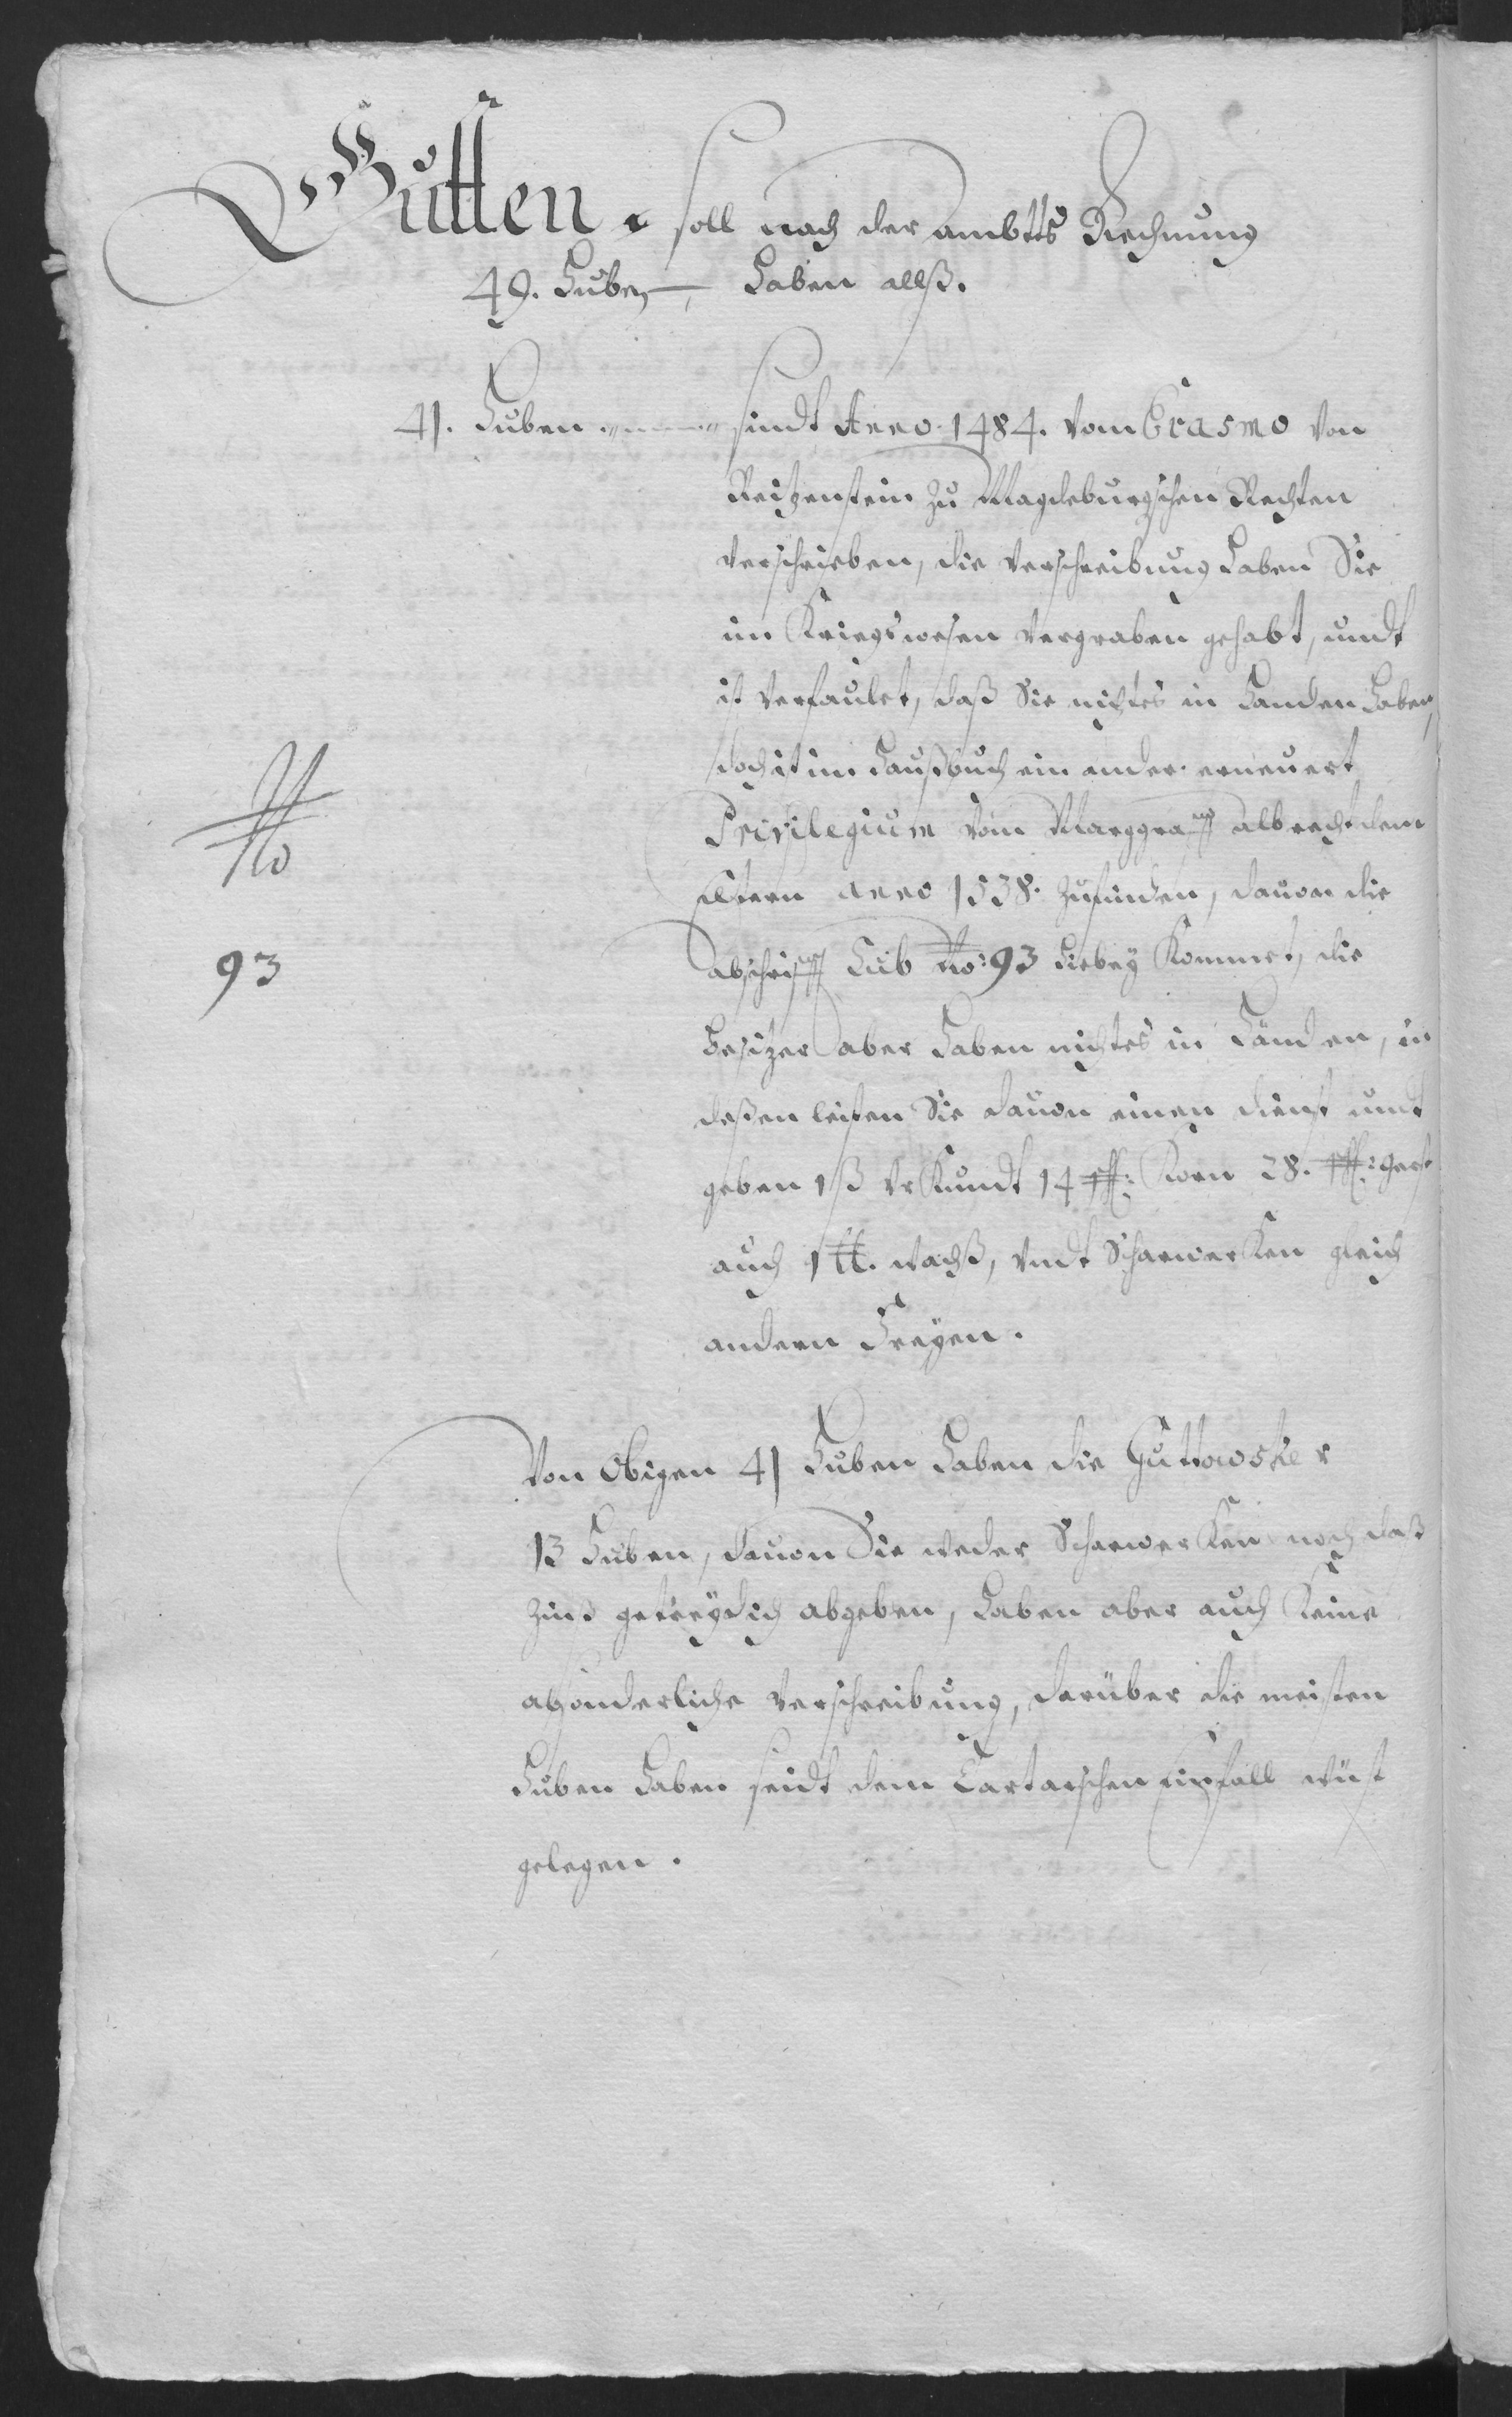 Gutten. soll nach der ambtts Rechnung
49. Huben haben allß.
41. Huben sindt Anno 1484. vom Erasmo von
Reitzenstein zu Magdeburgschen Rechten
verschrieben, die verschreibung haben Sie
im Kriegswesen vergraben gehabt, undt
ist verfaulet, daß Sie nichtes in Handen haben,
doch ist im Haußbuch ein ander erneuert
Privilegium vom Marggraff albrecht dem
Eltern anno 1538. zufinden, davon die
abschrifft Sub No: 93 hiebey Kommet, die
Besitzer aber haben nichtes in Händen, in
deßen leisten Sie davon einen dienst undt
geben 1 ß vrKundt 14 schff: Korn 28. schff: gerst
auch 1 tt. wachß, vndt ScharwerKen gleich
andern Freyen.
No
93
Von Obigen 41 Huben haben die Guttowsker
13 Huben, davon Sie weder ScharwerKen noch daß
Zinß getreydich abgeben, haben aber auch Keine
absonderliche verschreibung, darüber die meisten
Huben haben seidt dem Tartarschen Einfall wüst
gelegen.